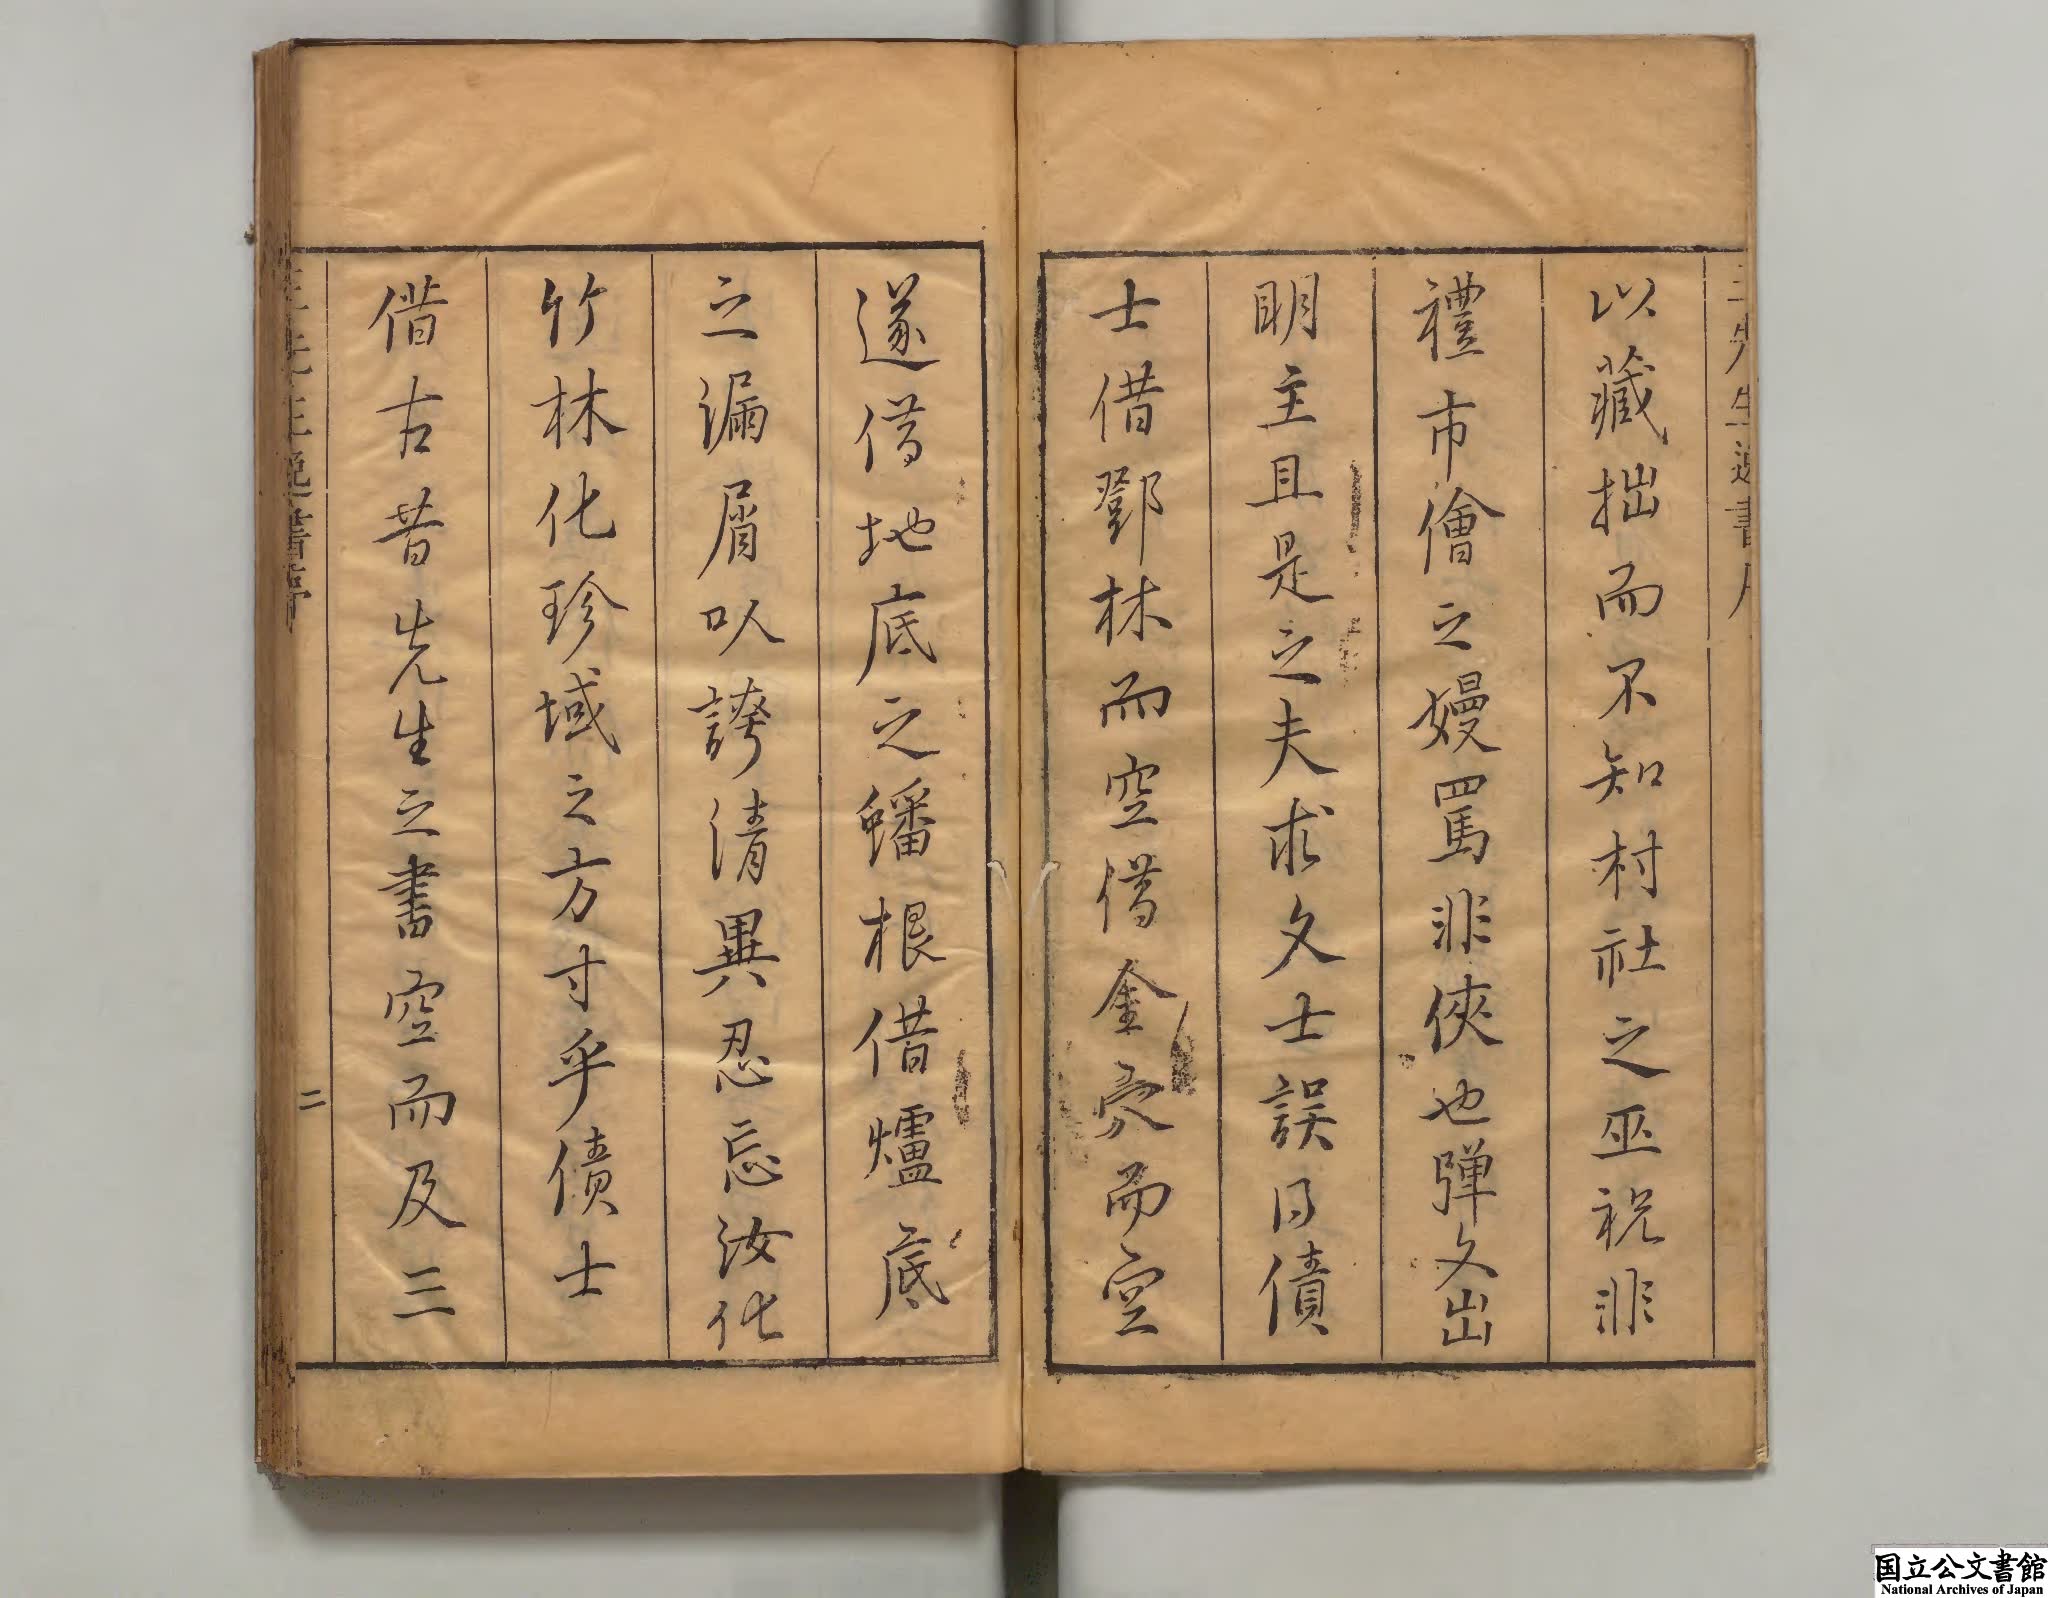 以藏拙而不知村社之巫祝非
禮市儈之嫚罵非俠也彈文出
明主且是之夫求文士誤得債
士借鄧林而空借金穴而空
遂借地底之蟠根借爐底
之漏屑以誇清異忍忘汝化
竹林化珍域之方寸乎債士
借古昔先生之書空而及三
二
国立公文書館
National Archives of Japan